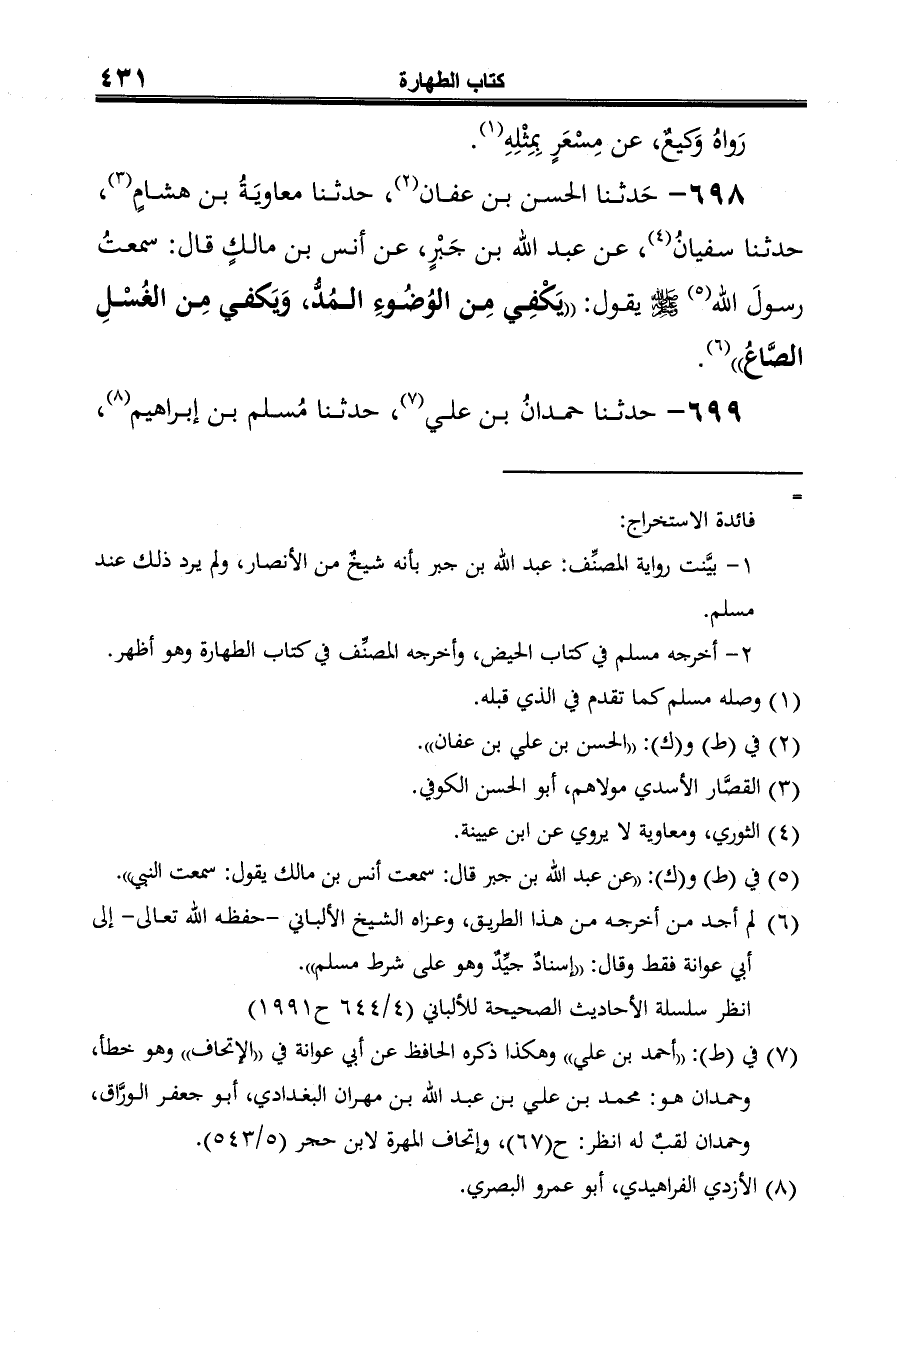 كتاب الطهارة ٤٣١
رَواهُ وَكيعٌ، عن مِسْعَرٍ بِمِثْلِهِ(١).
٦٩٨- حَدثنا الحسن بن عفان(٢)، حدثنا معاويَةُ بن هشامٍ(٣)،
حدثنا سفيانُ(٤)، عن عبد الله بن جَبْرٍ، عن أنس بن مالكٍ قال: سمعتُ
رسولَ الله(٥) ﷺ يقول: ((يَكْفِي مِن الوُضُوءِ المُدُّ، وَيَكفي مِن الغُسْلِ
الصَّاعُ))(٦).
٦٩٩- حدثنا حمدانُ بن علي(٧)، حدثنا مُسلم بن إبراهيم(٨)،
=
فائدة الاستخراج:
١- بيَّنت رواية المصنِّف: عبد الله بن جبر بأنه شيخٌ من الأنصار، ولم يرد ذلك عند
مسلم.
٢- أخرجه مسلم في كتاب الحيض، وأخرجه المصنِّف في كتاب الطهارة وهو أظهر.
(١) وصله مسلم كما تقدم في الذي قبله.
(٢) في (ط) و(ك): ((الحسن بن علي بن عفان)).
(٣) القصَّار الأسدي مولاهم، أبو الحسن الكوفي.
(٤) الثوري، ومعاوية لا يروي عن ابن عيينة.
(٥) في (ط) و(ك): ((عن عبد الله بن جبر قال: سمعت أنس بن مالك يقول: سمعت النبي)).
(٦) لم أجد من أخرجه من هذا الطريق، وعزاه الشيخ الألباني -حفظه الله تعالى- إلى
أبي عوانة فقط وقال: ((إسنادٌ جيِّدٌ وهو على شرط مسلم)).
انظر سلسلة الأحاديث الصحيحة للألباني (٦٤٤/٤ ح١٩٩١)
(٧) في (ط): ((أحمد بن علي)) وهكذا ذكره الحافظ عن أبي عوانة في ((الإتحاف)) وهو خطأ،
وحمدان هو: محمد بن علي بن عبد الله بن مهران البغدادي، أبو جعفر الورَّاق،
وحمدان لقبٌ له انظر: ح(٦٧)، وإتحاف المهرة لابن حجر (٥٤٣/٥).
(٨) الأزدي الفراهيدي، أبو عمرو البصري.